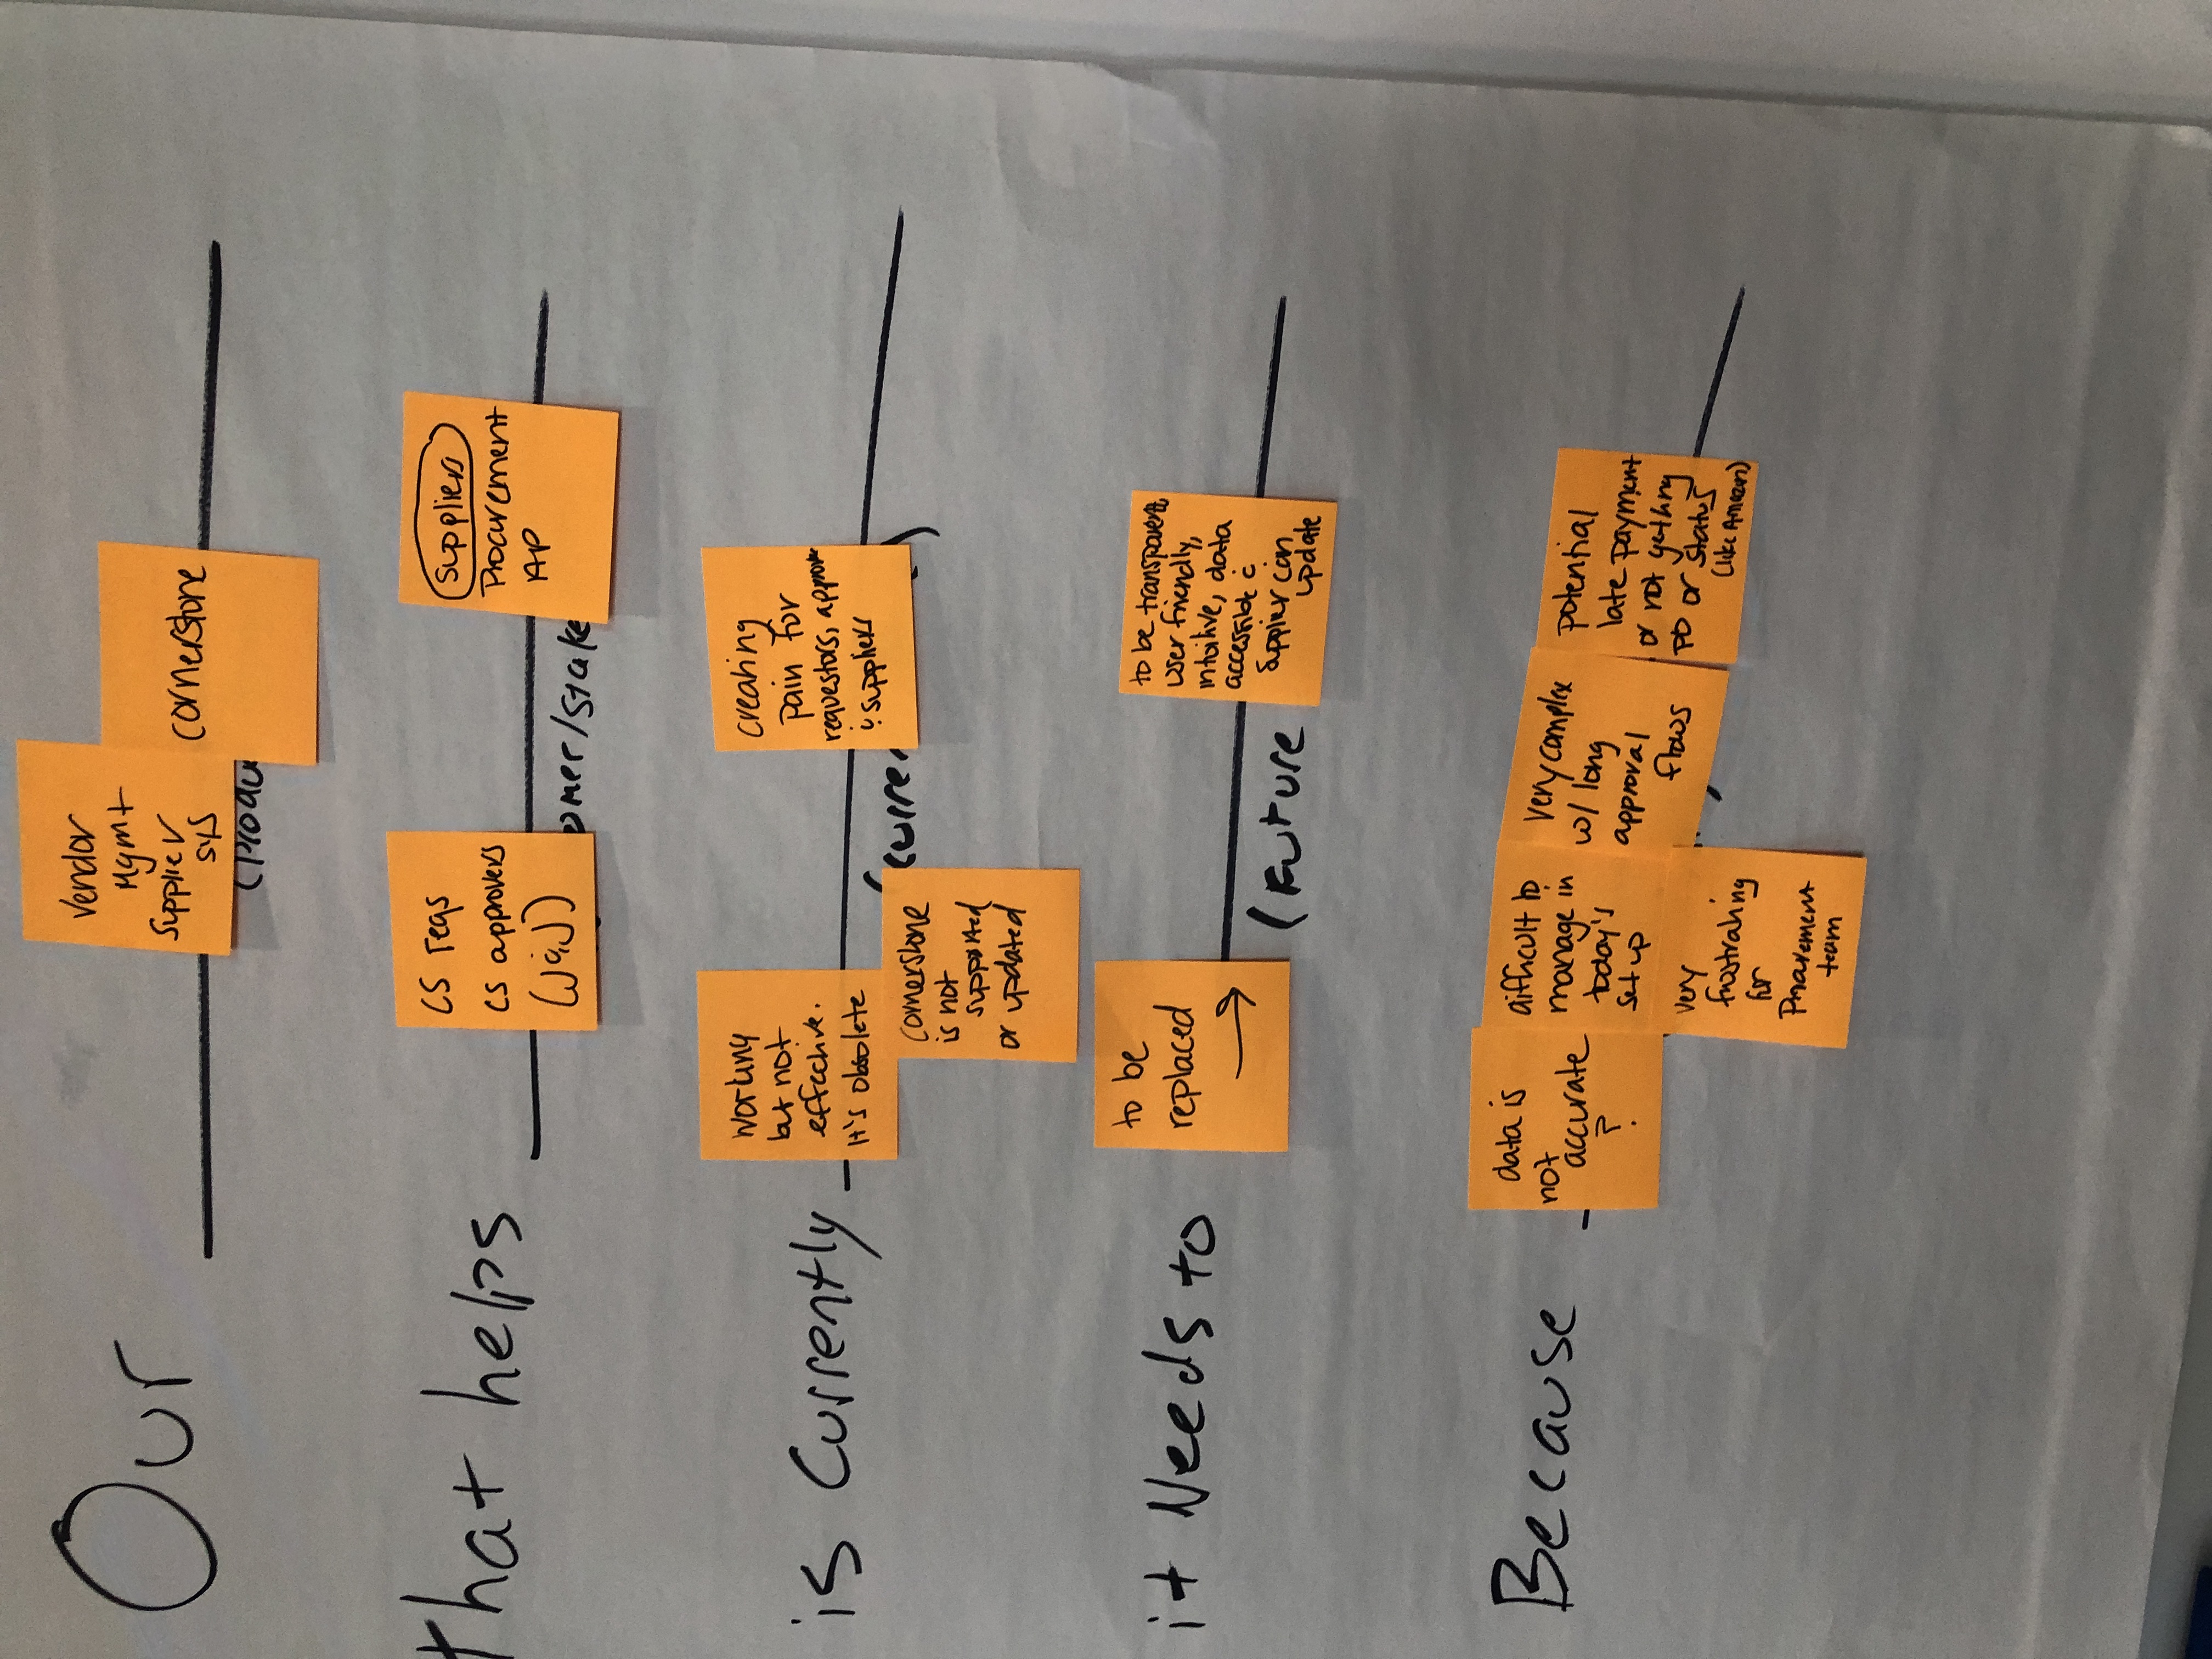 Our
Vendor
Mgmt
Supplier
sys
cornerstone
(produ
That helps
CS reqs
CS approvers
(J&J)
Suppliers
Procurement
AP
omer/stake
is Currently
working
but not
effective.
It's obsolete
creating
pain for
requestors, approver
& suppliers
(curren
)
cornerstone
is not
supported
or updated
it Needs to
to be
replaced
→
to be transparent
user friendly,
intuitive, data
accessible &
Supplier can
update
(Future
Because
data is
not
accurate
?
difficult to
manage in
today's
set up
very complex
w/ long
approval
flows
potential
late payment
or not getting
PO or status
(like Amazon)
very
frustrating
for
Procurement
team